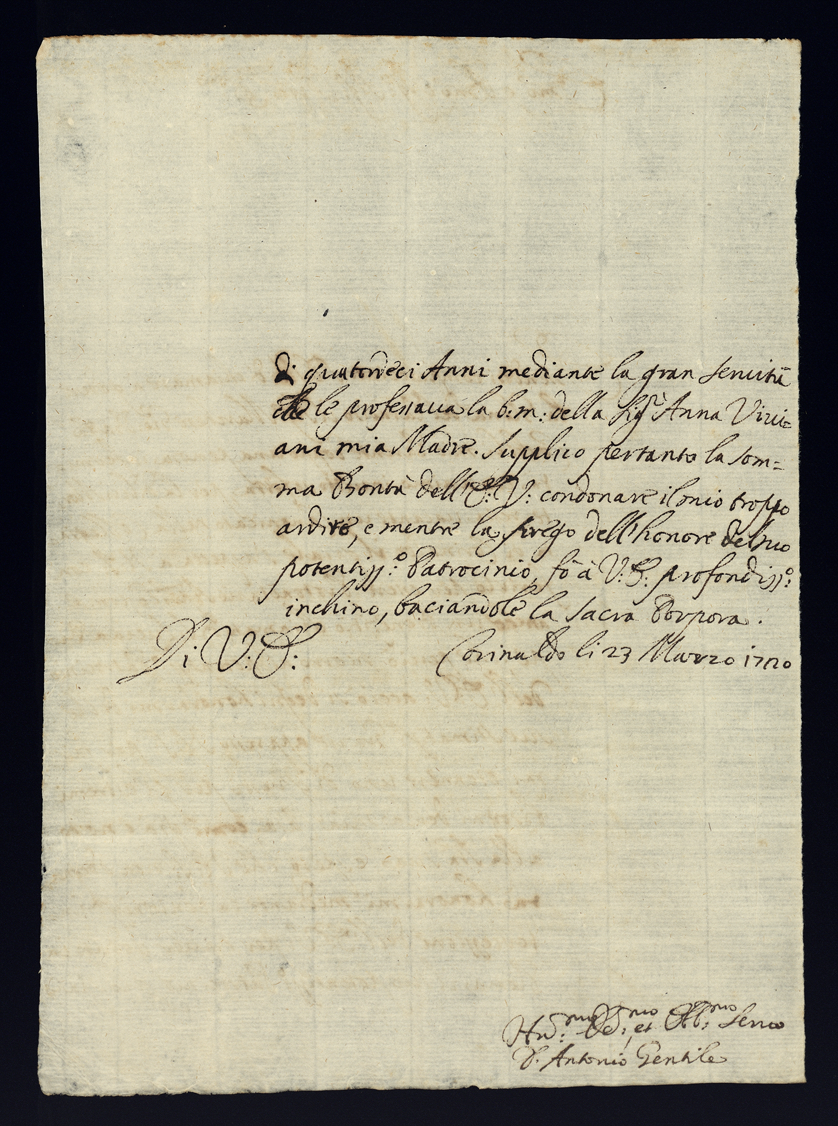 di quatordeci Anni mediante la gran servitù
che le professava la b: m: della Sig.ra Anna Vivi=
ani mia Madre. Supplico pertanto la som=
ma Bontà dell'E: V: condonare il mio troppo
ardire, e mentre la prego dell'honore del suo
potentiss:o Patrocinio, fò à V: E: profondiss:o
inchino, baciandole la sacra Porpora.
Di V: E: Corinaldo li 23 Marzo 1720
Hu:mo De:mo et Ob:mo Servo
D. Antonio Gentile